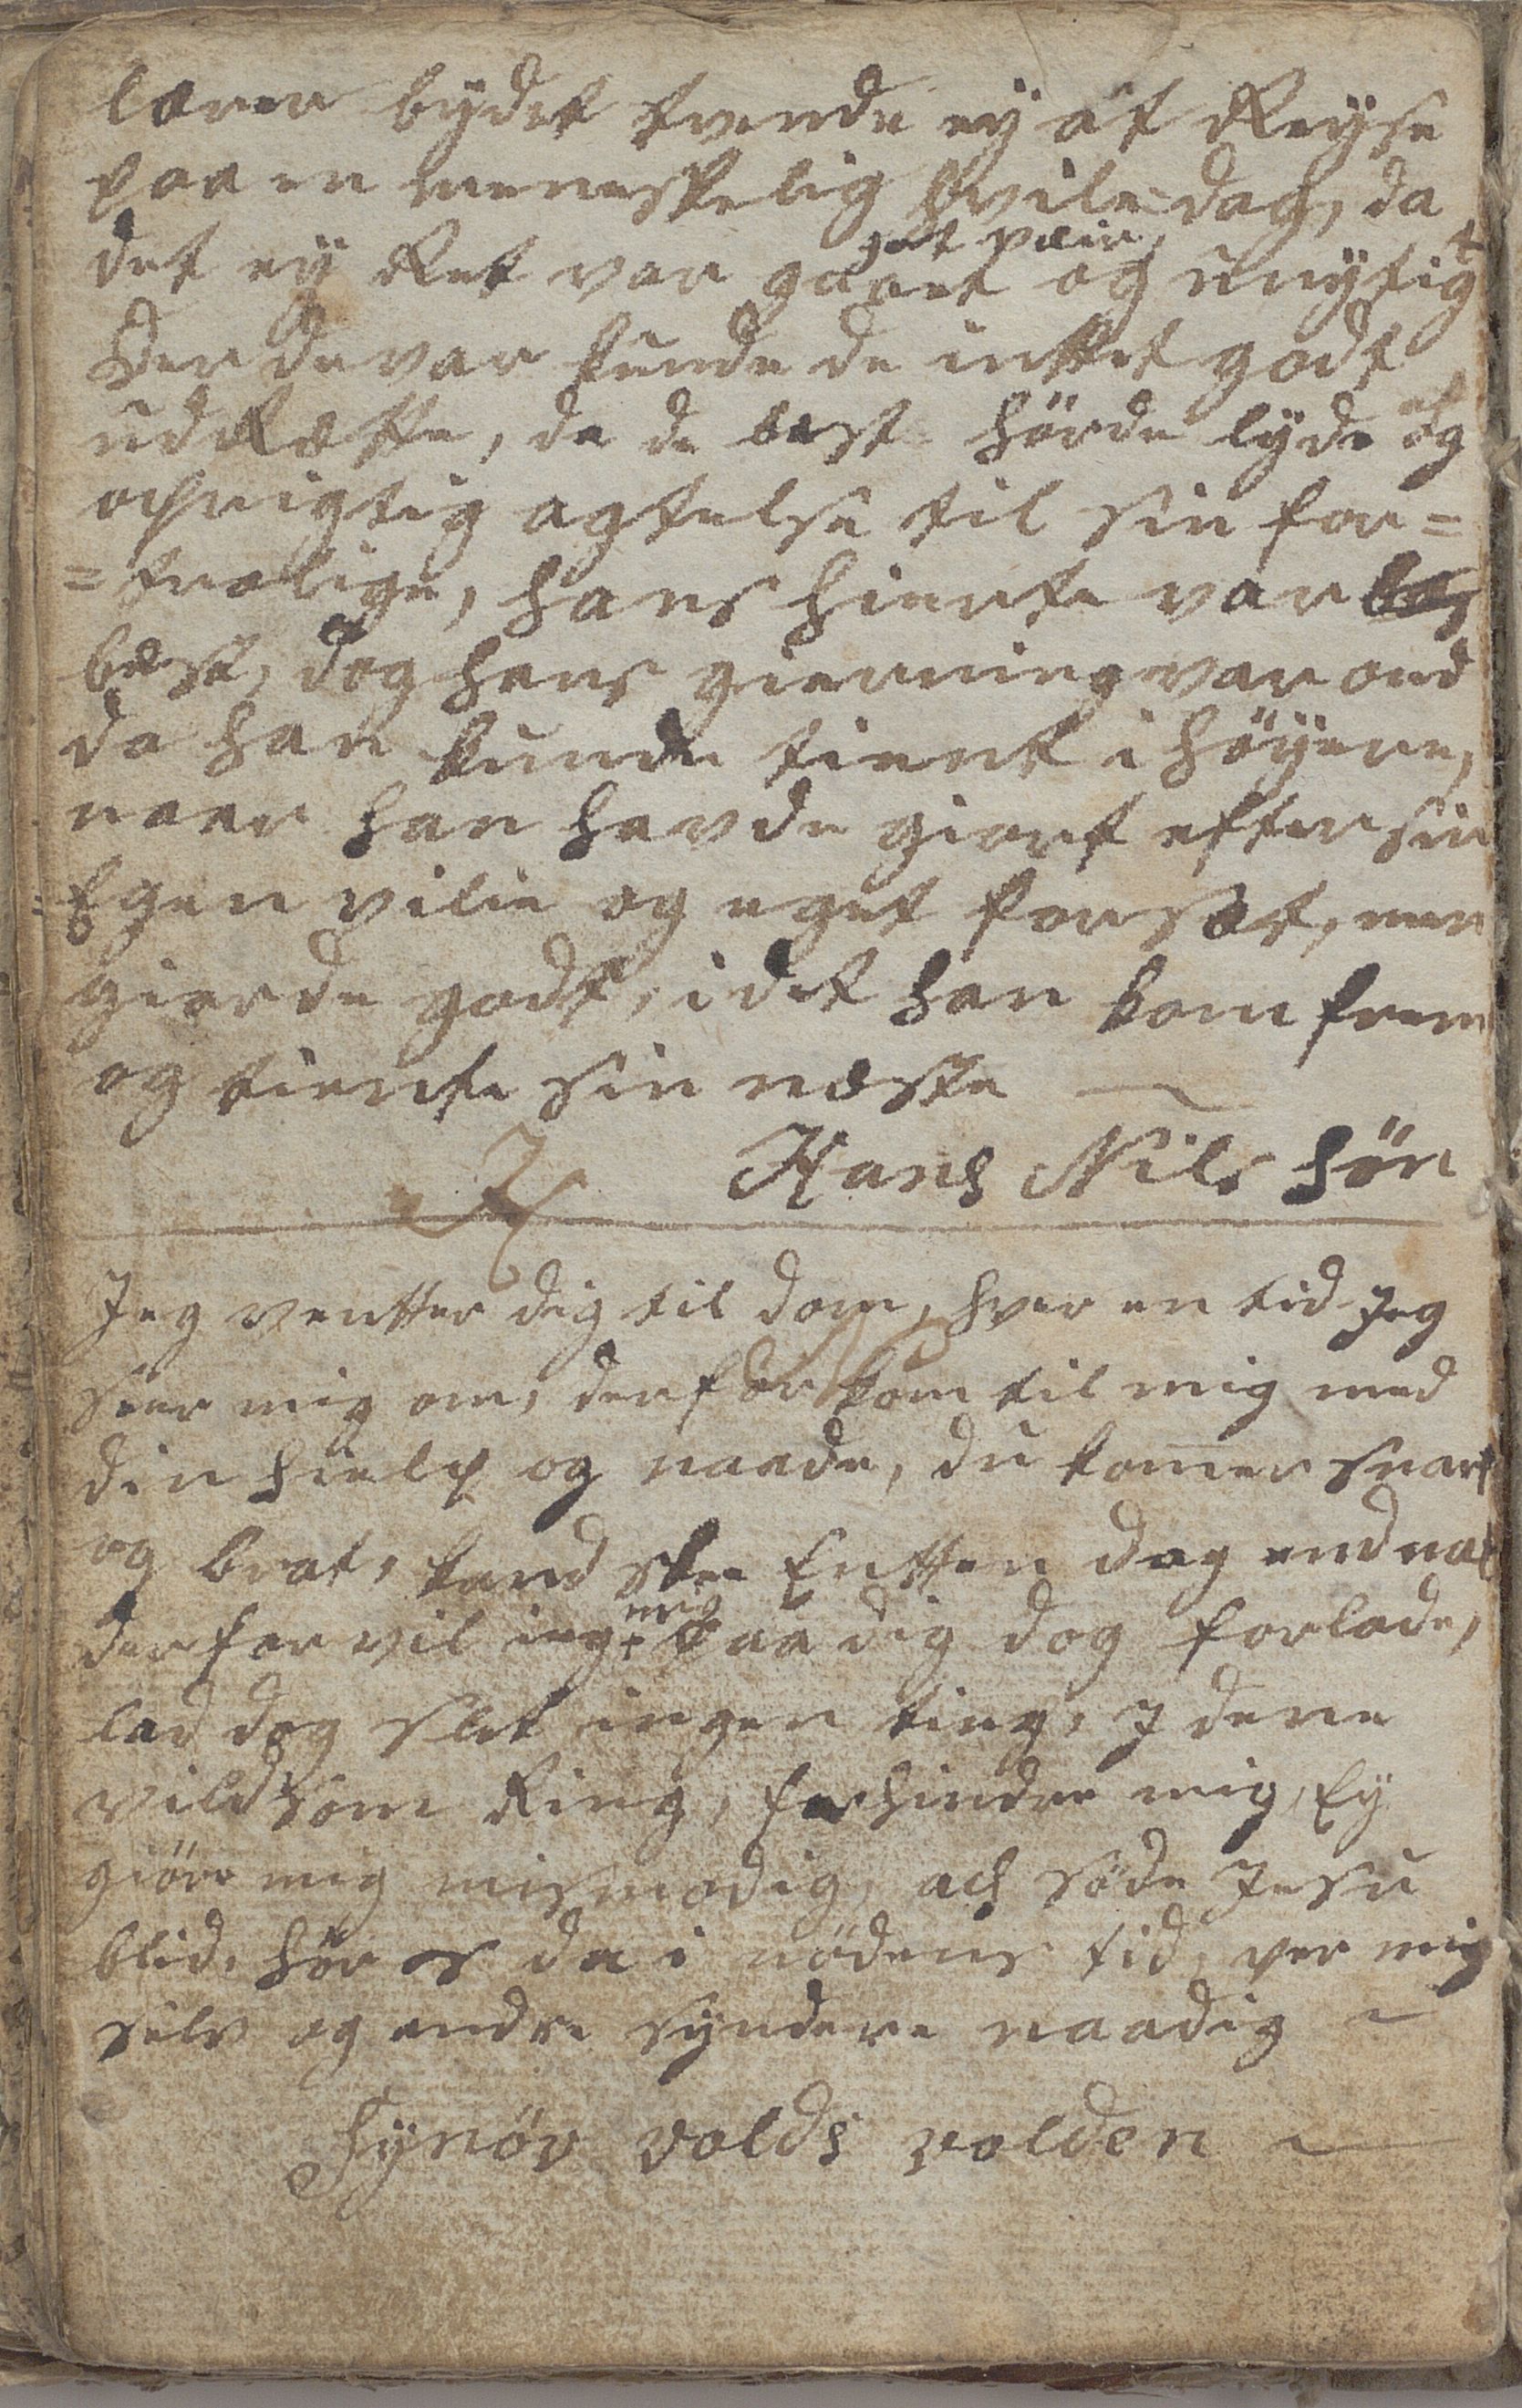 lærer bydet tvende ey at Reyse
paa en meneskelig hvile=dag, da
det ey Ret var giort og unyttigt
Der de var kunde de inttet godt
udRætte, da de best hörde lyde og
oprigtig agtelse til sin for=
=trolige, hans hierte var
best, dog hans gierning var ond
da han kunde tient i höyere,
naar han havde giort efter sin
Egen vilie og eget forsæt, men
giorde godt, i det han kom frem
og tiente sin næste
Hans Nils sön
Jeg ventter dig til dom, hver en tid Jeg
seer mig om, derfor kom til mig med
din hielp og naade, du komer snart
og brat, kand skee Entten dag end nat
derfor vil ieg mig paa dig dog forlade,
lad dog slet ingen ting, I dene
vildsom Ring, forhindre mig, Ey
giöre mig mismodig, ach söde Jesu
blid, hör os da i nödens tid, ver mig
selv og andre syndere naadig
Synöv volds volden